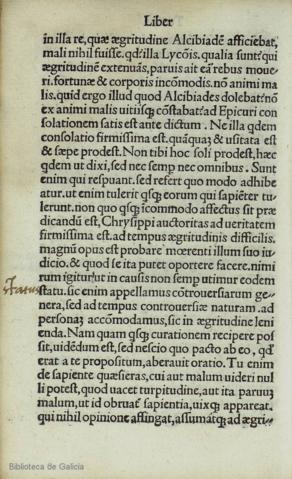 Liber
in illa re, quæ ægritudine Alcibiadē afficiebat,
mali nihil fuisse. qd' illa Lycōis. qualia sunt: qui
ægritudinē extenuās, paruis ait eā rebus moue/
ri. fortunæ & corporis incōmodis. nō animi ma
lis. quid ergo illud quod Alcibiades dolebat: nō
ex animi malis uitiisq; cōstabat: ad Epicuri con
solationem satis est ante dictum. Ne illa qdem
consolatio firmissima est. quāquā & usitata est
& sæpe prodest. Non tibi hoc soli prodest, hæc
qdem ut dixi, sed nec semp nec omnibus. Sunt
enim qui respuant. sed refert quo modo adhibe
atur. ut enim tulerit qsq; eorum qui sapiēter tu/
lerunt. non quo qsq; icommodo affectus sit præ
dicandū est, Chrysippi auctoritas ad ueritatem
firmissima est. ad tempus ægritudinis difficilis.
magnū opus est probare mœrenti illum suo iu/
dicio. & quod se ita putet oportere facere. nimi
rum igitur ut in causis non semp utimur eodem
statu
statu. sic enim appellamus cōtrouersiarum ge/
nera, sed ad tempus controuersiæ naturam. ad
personaʒ accōmodamus, sic in ægritudine leni
enda. Nam quam qsq; curationem recipere pos
sit, uidēdum est, sed nescio quo pacto ab eo, qd'
erat a te propositum, aberauit oratio. Tu enim
de sapiente quæsieras, cui aut malum uideri nul
li potest, quod uacet turpitudine, aut ita paruuʒ
malum, ut id obruat' sapientia, uixq; appareat.
qui nihil opinione affingat, assumatq; ad ægri/
Biblioteca de Galicia